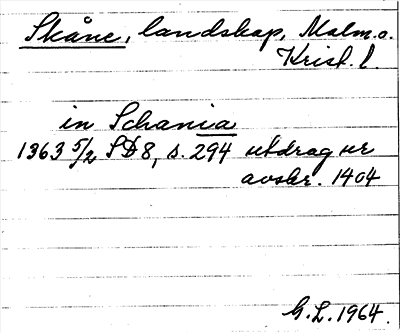 Skåne, landskap, Malm. o.
Krist. l.
in Schania
1363 5/2 SD 8, s. 294 utdrag ur
avskr. 1404
G.L. 1964.